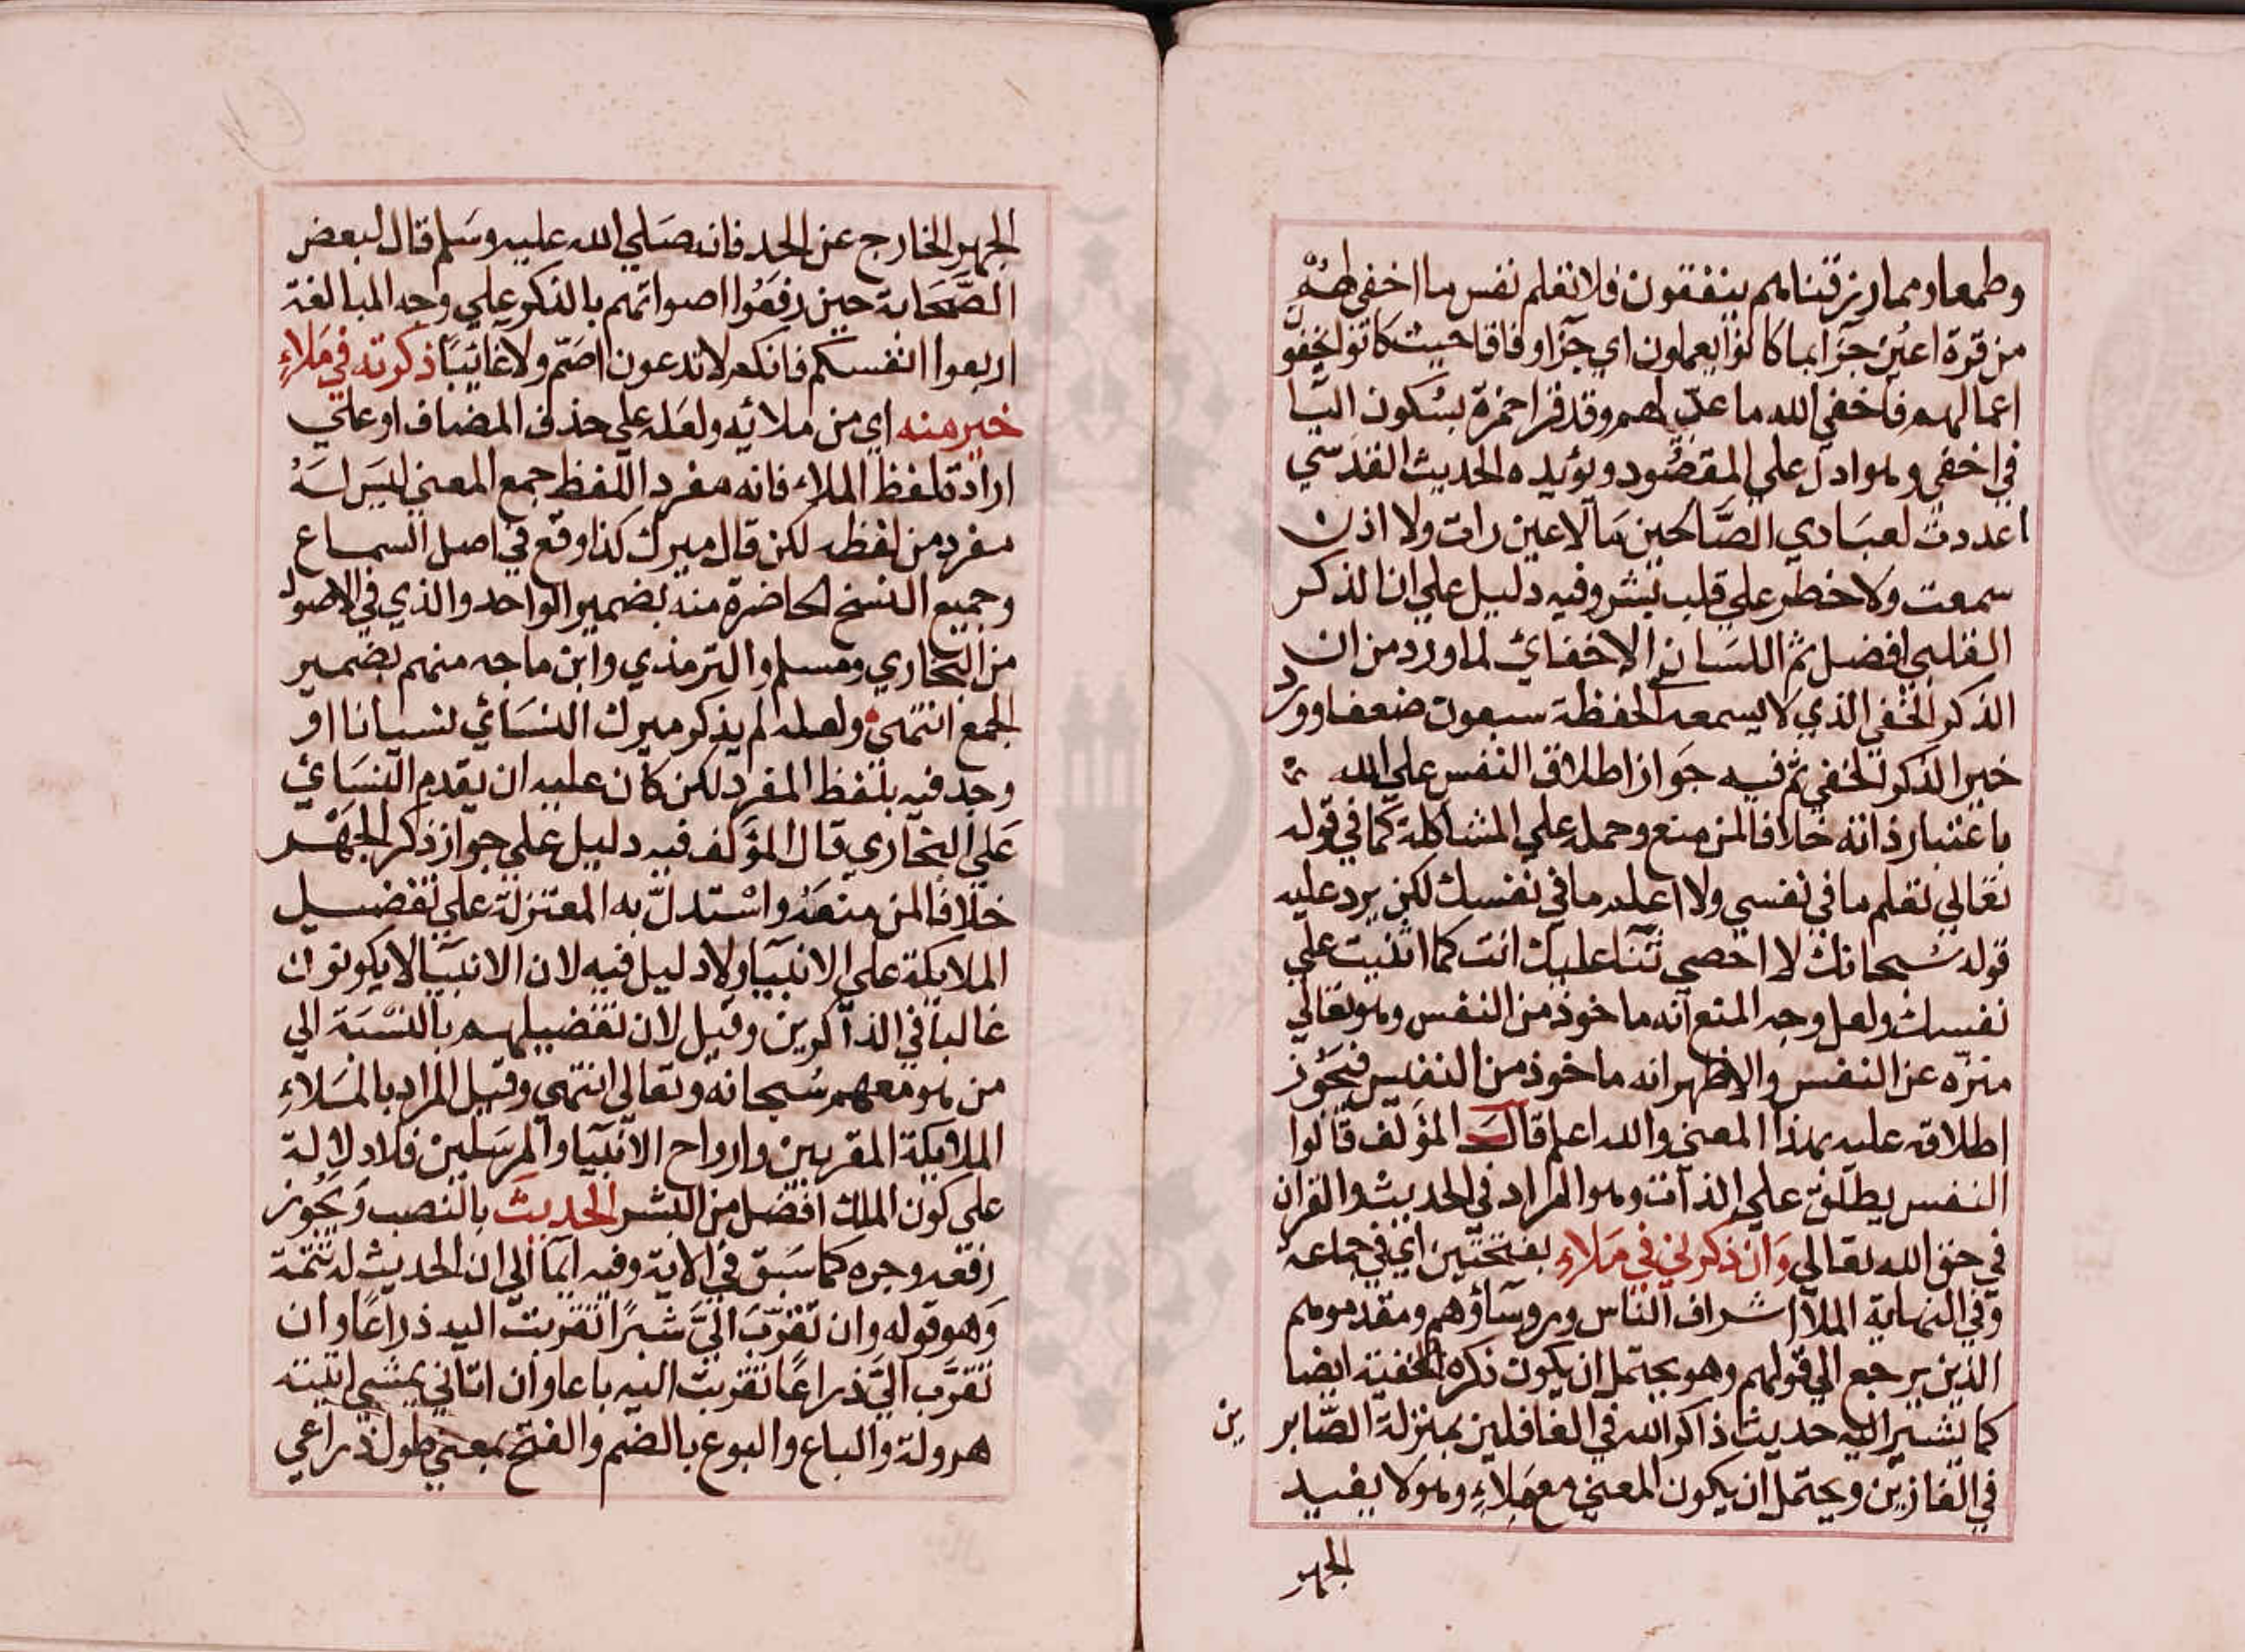 وطمعا ومما رزقناهم ينفقون فلا تعلم نفس ما اخفي لهم
من قرة اعين جزآ بما كانوا يعملون اي جزآ وفاقا حيث كانوا يخفون
اعمالهم فاخفي الله ما عد لهم وقد قرا حمزة بسكون اليا
في اخفي وهو ادل علي المقصود ويؤيده الحديث القدسي
اعددت لعبادي الصالحين ما لا عين رات ولا اذن
سمعت ولا خطر علي قلب بشر وفيه دليل علي ان الذكر
القلبي افضل ثم اللسان الاخفائي لما ورد من ان
الذكر الخفي الذي لا يسمعه الحفظة سبعون ضعفا وورد
خير الذكر الخفي ثم فيه جواز اطلاق النفس علي الله
باعتبار ذاته خلافا لمن منع وحمله علي المشاكلة كما في قوله
تعالي تعلم ما في نفسي ولا اعلم ما في نفسك لكن يرد عليه
قوله سبحانك لا احصي ثنآ عليك انت كما اثنيت علي
نفسك ولعل وجه المنع انه ماخوذ من النفس وهو تعالي
منزه عن النفس والاظهر انه ماخوذ من النفيس فيجوز
اطلاقه عليه بهذا المعني والله اعلم قال المؤلف قالوا
النفس يطلق علي الذات وهو المراد في الحديث والقران
في حق الله تعالي وان ذكرني في ملاء بفتحتين اي في جماعة
وفي النهاية الملأ اشراف الناس وروساؤهم ومقدموهم
الذين يرجع الي قولهم وهو يحتمل ان يكون ذكره الخفية ايضا
كما يشير اليه حديث ذاكر الله في الغافلين بمنزلة الصابر
ين
في الغازين ويحتمل ان يكون المعني مع ملاء وهو لا يفيد
الجهر
الجهر الخارج عن الحد فانه صلي الله عليه وسلم قال لبعض
الصحابة حين رفعوا اصواتهم بالذكر علي وجه المبالغة
اربعوا انفسكم فانكم لا تدعون اصم ولا غائبا ذكرته في ملاء
خير منه اي من ملائه ولعله علي حذف المضاف او علي
ارادة لفظ الملاء فانه مفرد اللفظ جمع المعني ليس له
مفرد من لفظه لكن قال ميرك كذا وقع في اصل السماع
وجميع النسخ الحاضرة منه بضمير الواحد والذي في الاصول
من البخاري ومسلم والترمذي وابن ماجه منهم بضمير
الجمع انتهي ولعله لم يذكر ميرك النسائي نسيانا او
وجد فيه بلفظ المفرد لكن كان عليه ان يقدم النسائي
علي البخاري قال المؤلف فيه دليل علي جواز ذكر الجهر
خلافا لمن منعه واستدل به المعتزلة علي تفضيل
الملايكة علي الانبيا ولا دليل فيه لان الانبيا لا يكونون
غالبا في الذاكرين وقيل لان تفضيلهم بالنسبة الي
من هو معهم سبحانه وتعالي انتهي وقيل المراد بالملاء
الملايكة المقربين وارواح الانبيا والمرسلين فلا دلالة
علي كون الملك افضل من البشر الحديث بالنصب ويجوز
رفعه وجره كما سبق في الاية وفيه ايمآ الي ان الحديث له تتمة
وهو قوله وان تقرب الي شبرا تقربت اليه ذراعا وان
تقرب الي ذراعا تقربت اليه باعا وان اتاني يمشي اتيته
هرولة والباع والبوع بالضم والفتح بمعني طول ذراعي